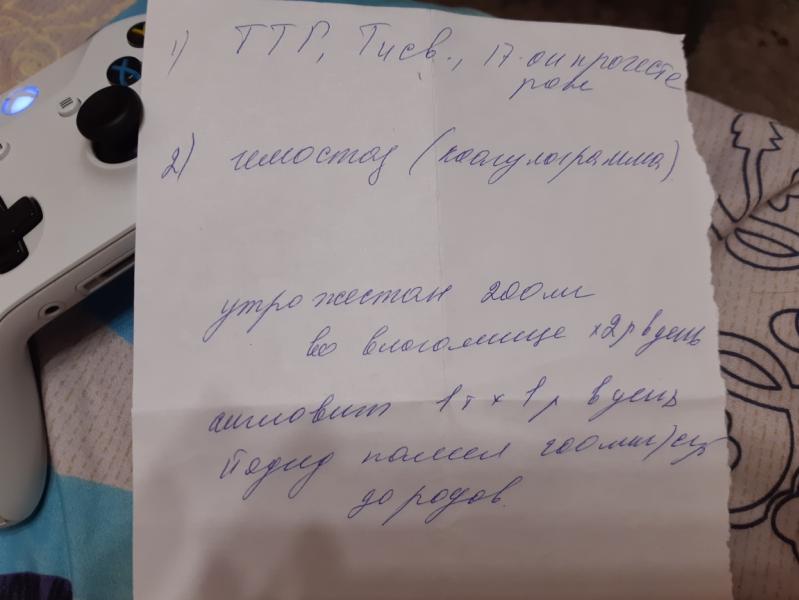 1) ТТГ, Т4 св., 17-он прогесте
рон
2) гемостаз (коагулограмма)
утрожестан 200мг
во влагалище х2р в день
ангиовит 1т х 1р в день
йодид калия 200мкг/сут
до родов.